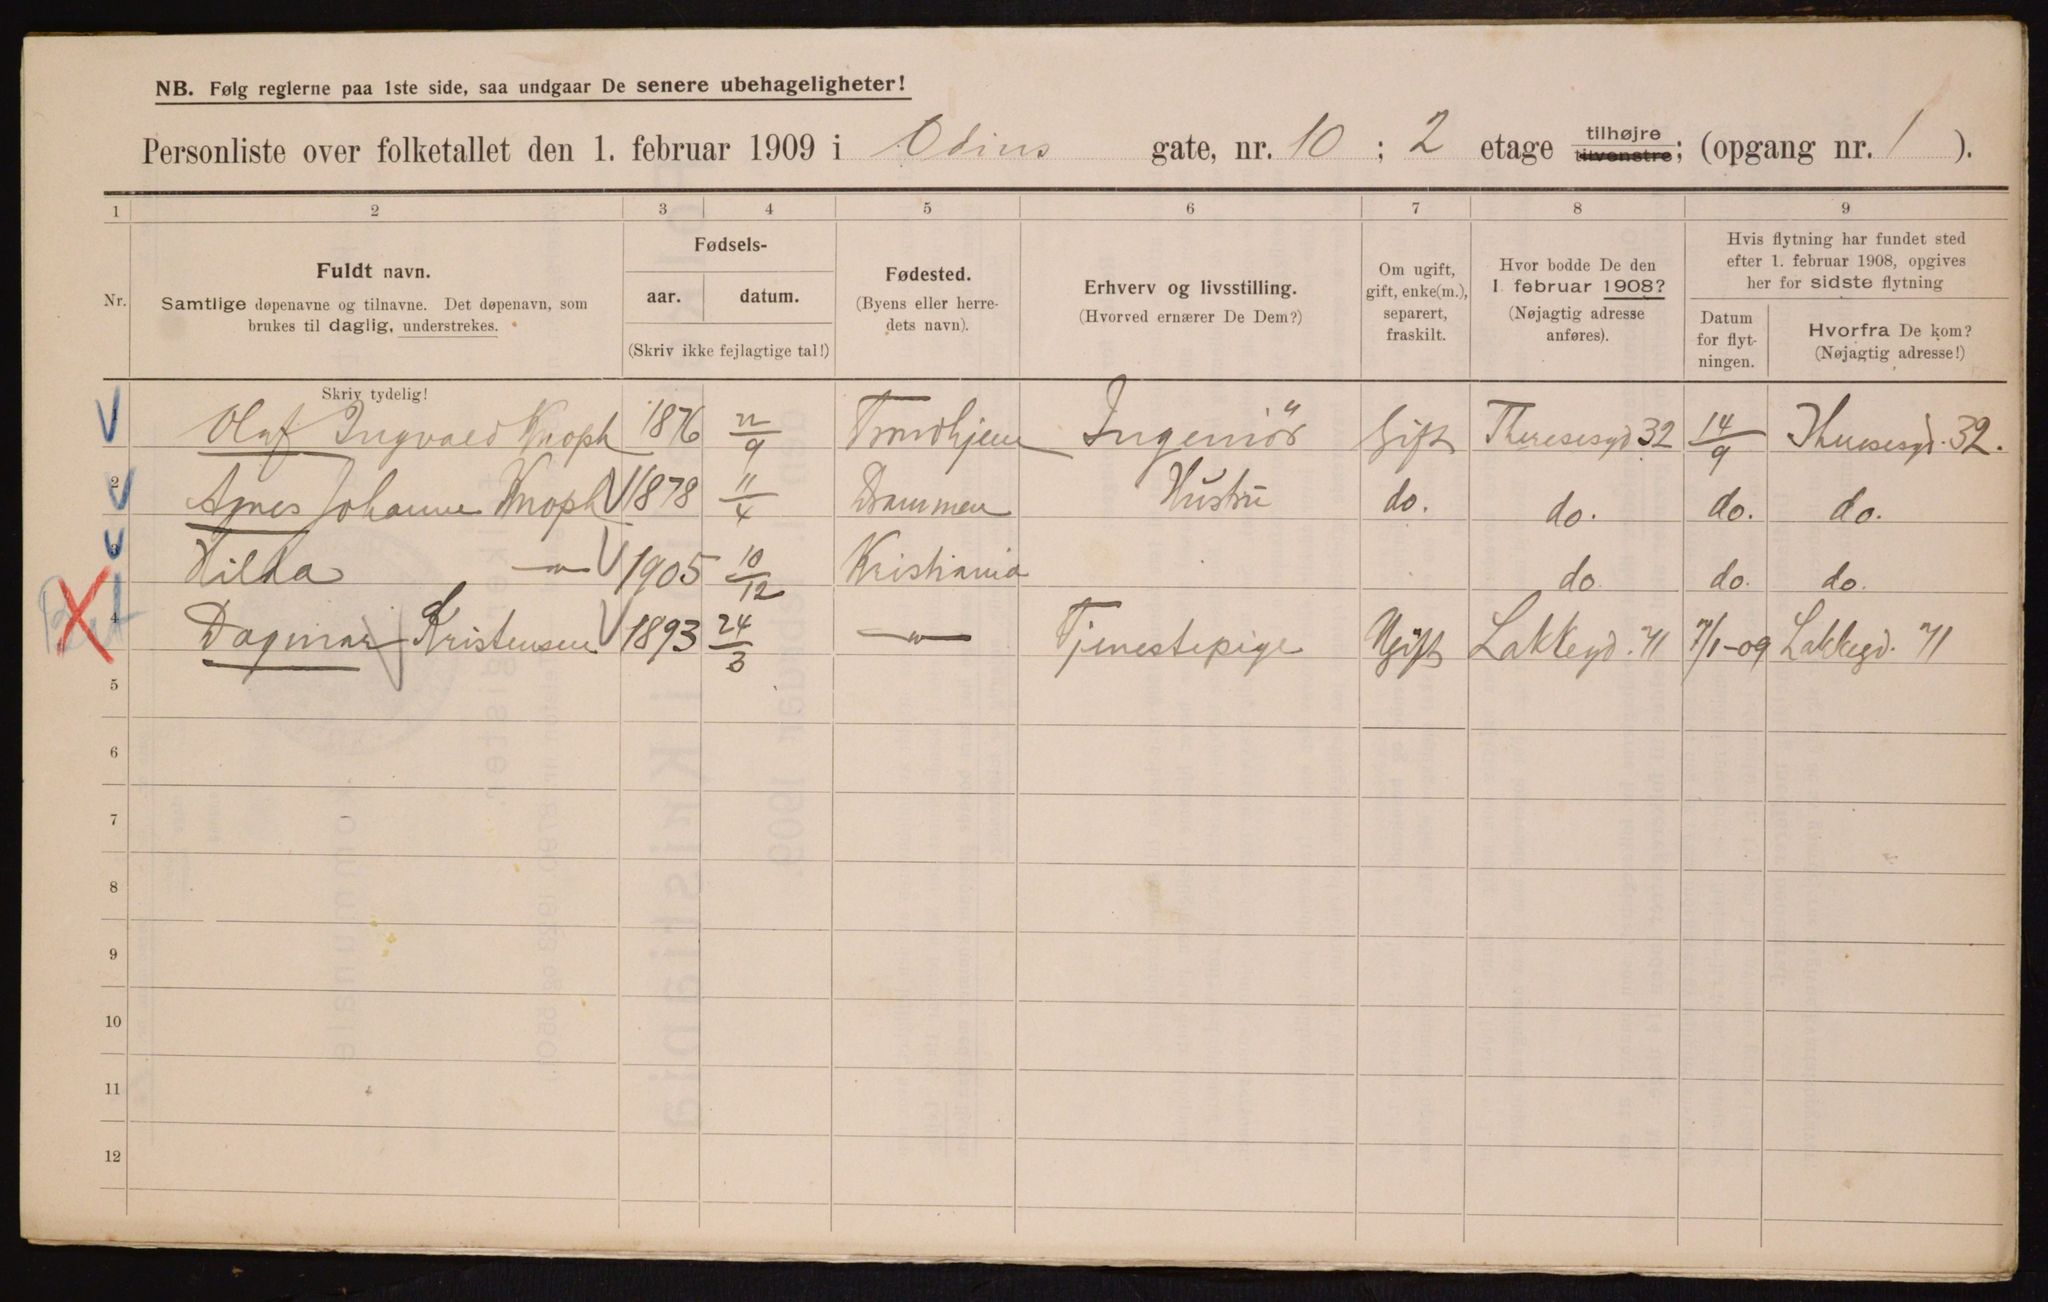 NB. Følg reglerne paa 1ste side, saa undgaar De senere ubehageligheter!
Personliste over folketallet den 1. februar 1909 i Odins gate, nr. 10 ; 2 etage tilhøjre tilvenstre; (opgang nr. 1 ).
1 2 3 4 5 6 7 8 9
Nr.
Fuldt navn.
Samtlige døpenavne og tilnavne. Det døpenavn, som
brukes til daglig, understrekes.
Skriv tydelig!
Fødsels-
aar. datum.
(Skriv ikke fejlagtige tal!)
Fødested.
(Byens eller herre-
dets navn).
Erhverv og livsstilling.
(Hvorved ernærer De Dem?)
Om ugift,
gift, enke(m.),
separert,
fraskilt.
Hvor bodde De den
1 februar 1908?
(Nøjagtig adresse
anføres).
Hvis flytning har fundet sted
efter 1. februar 1908, opgives
her for sidste flytning
Datum
for flyt-
ningen.
Hvorfra De kom?
(Nøjagtig adresse!)
1 Olaf Ingvald Knoph 1876 22/9 Trondhjem Ingeniör Gift Theresesgd 32 14/9 Theresesgd. 32.
2 Agnes Johanne Knoph 1878 11/4 Drammen Hustru do. do. do. do.
3 Hilda —"— 1905 10/12 Kristiania do. do. do.
4 Dagmar Kristensen 1893 24/3 —"— Tjenestepige Ugift Lakkegd. 71 7/1-09 Lakkegd. 71
5
6
7
8
9
10
11
12